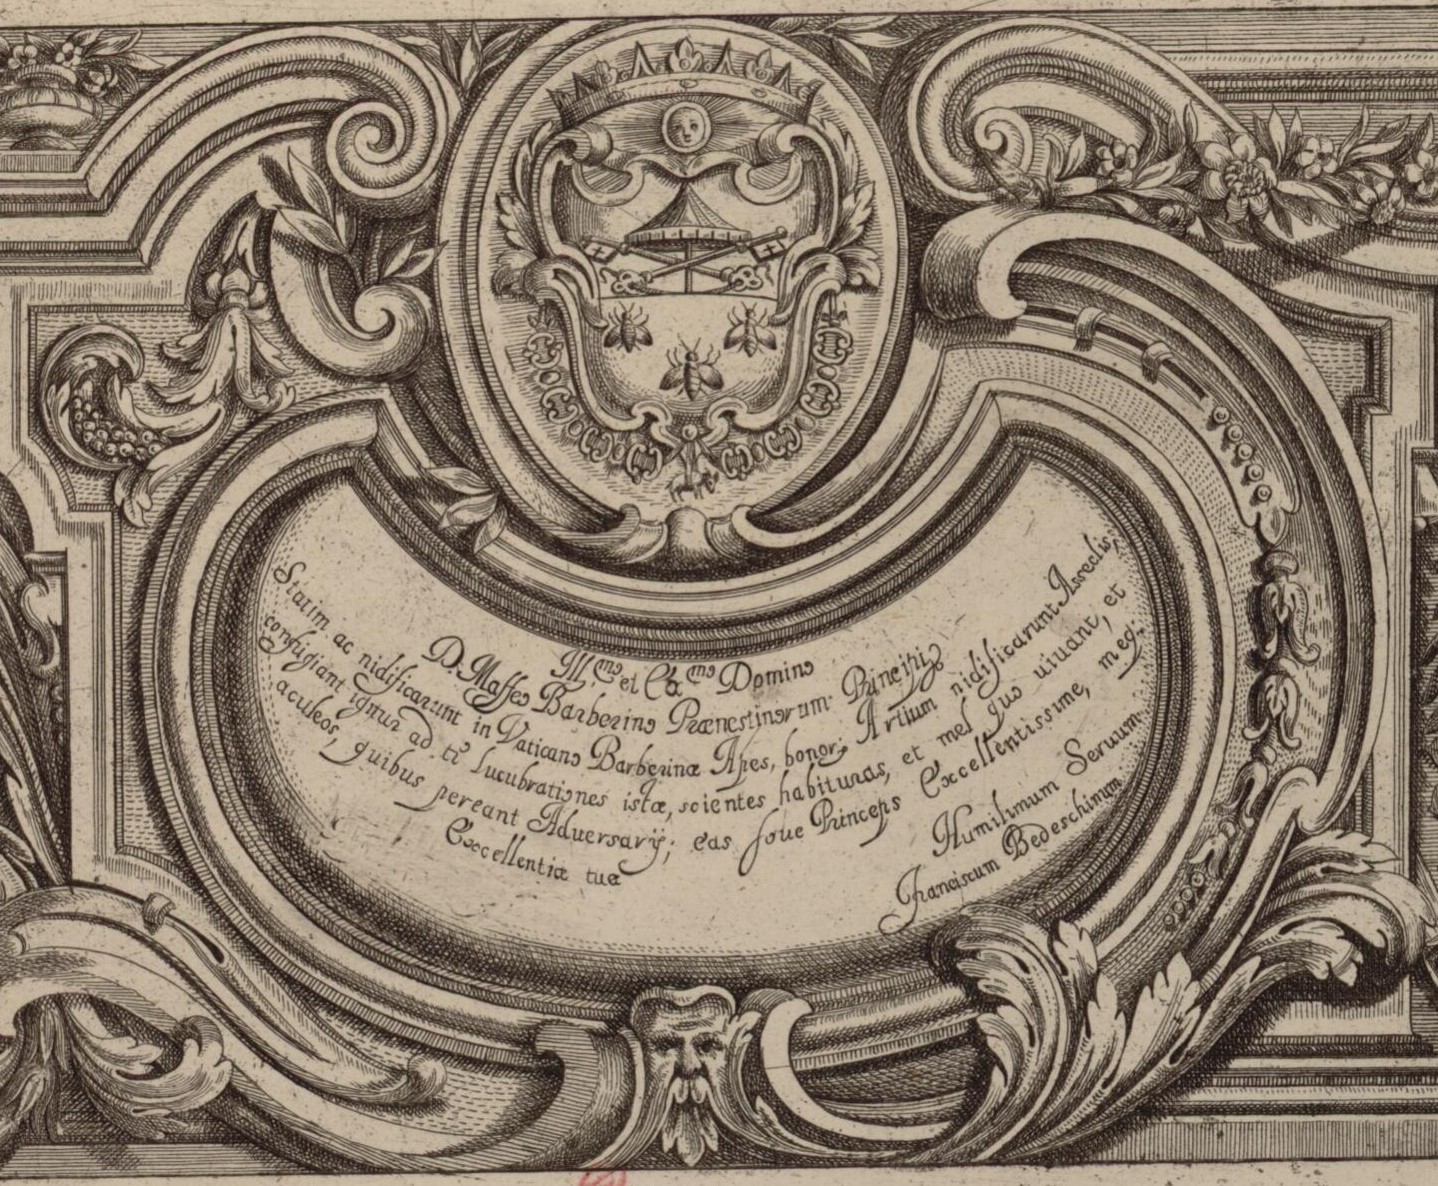 Ill.mo et Ex.mo Domino
D. Maffeo Barberino Prænestinorum Principi
Statim ac nidificarunt in Vaticano Barberinæ Apes, bonor; Artium nidificarunt Asseclis,
confugiant igitur ad te lucubrationes istæ, scientes habituras, et mel quo uiuant, et
aculeos, quibus pereant Adversarij; eas foue Princeps Excellentissime, meq;
Excellentiæ tuæ Humilimum Seruum
Franciscum Bedeschinum